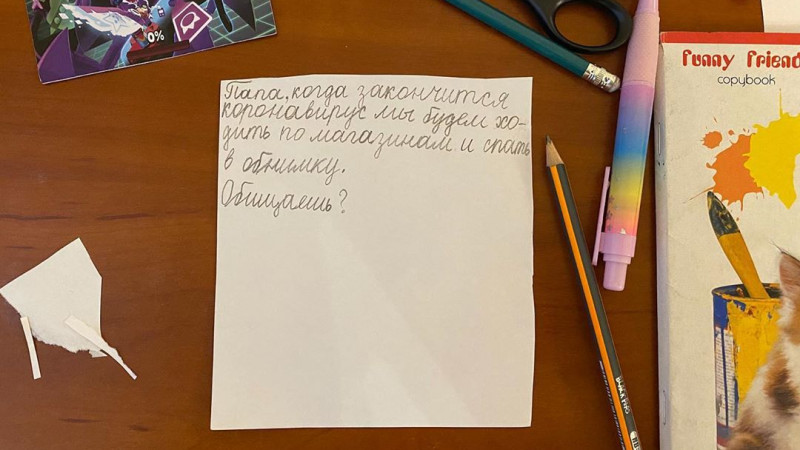 0%
Папа, когда закончится
коронавирус мы будем хо-
дить по магазинам и спать
в обнимку.
Обищаешь?
Funny Friend
copybook
HB